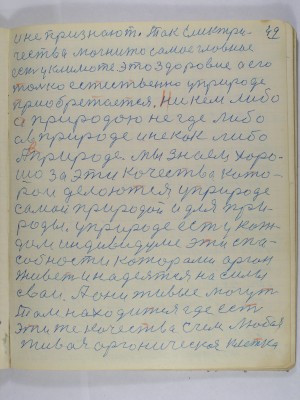 49
и не признают. Так електри-
чества магнито самое главные
есть у климоте это здоровие а его
только естественно у природе
приобретается. Ни кем либо
а природою не где либо
а в природе и не как либо
А природе. Мы знаем хоро-
шо за эти качества кото-
рои делаются у природе
самой природой и для при-
роды. у природе есть у каж-
дом индивидуме эти спа-
собности которами орган
живет и надеятся на силы
сваи. А они живые могут
там находится где есть
эти те качества с чем любая
живая органическая клетка